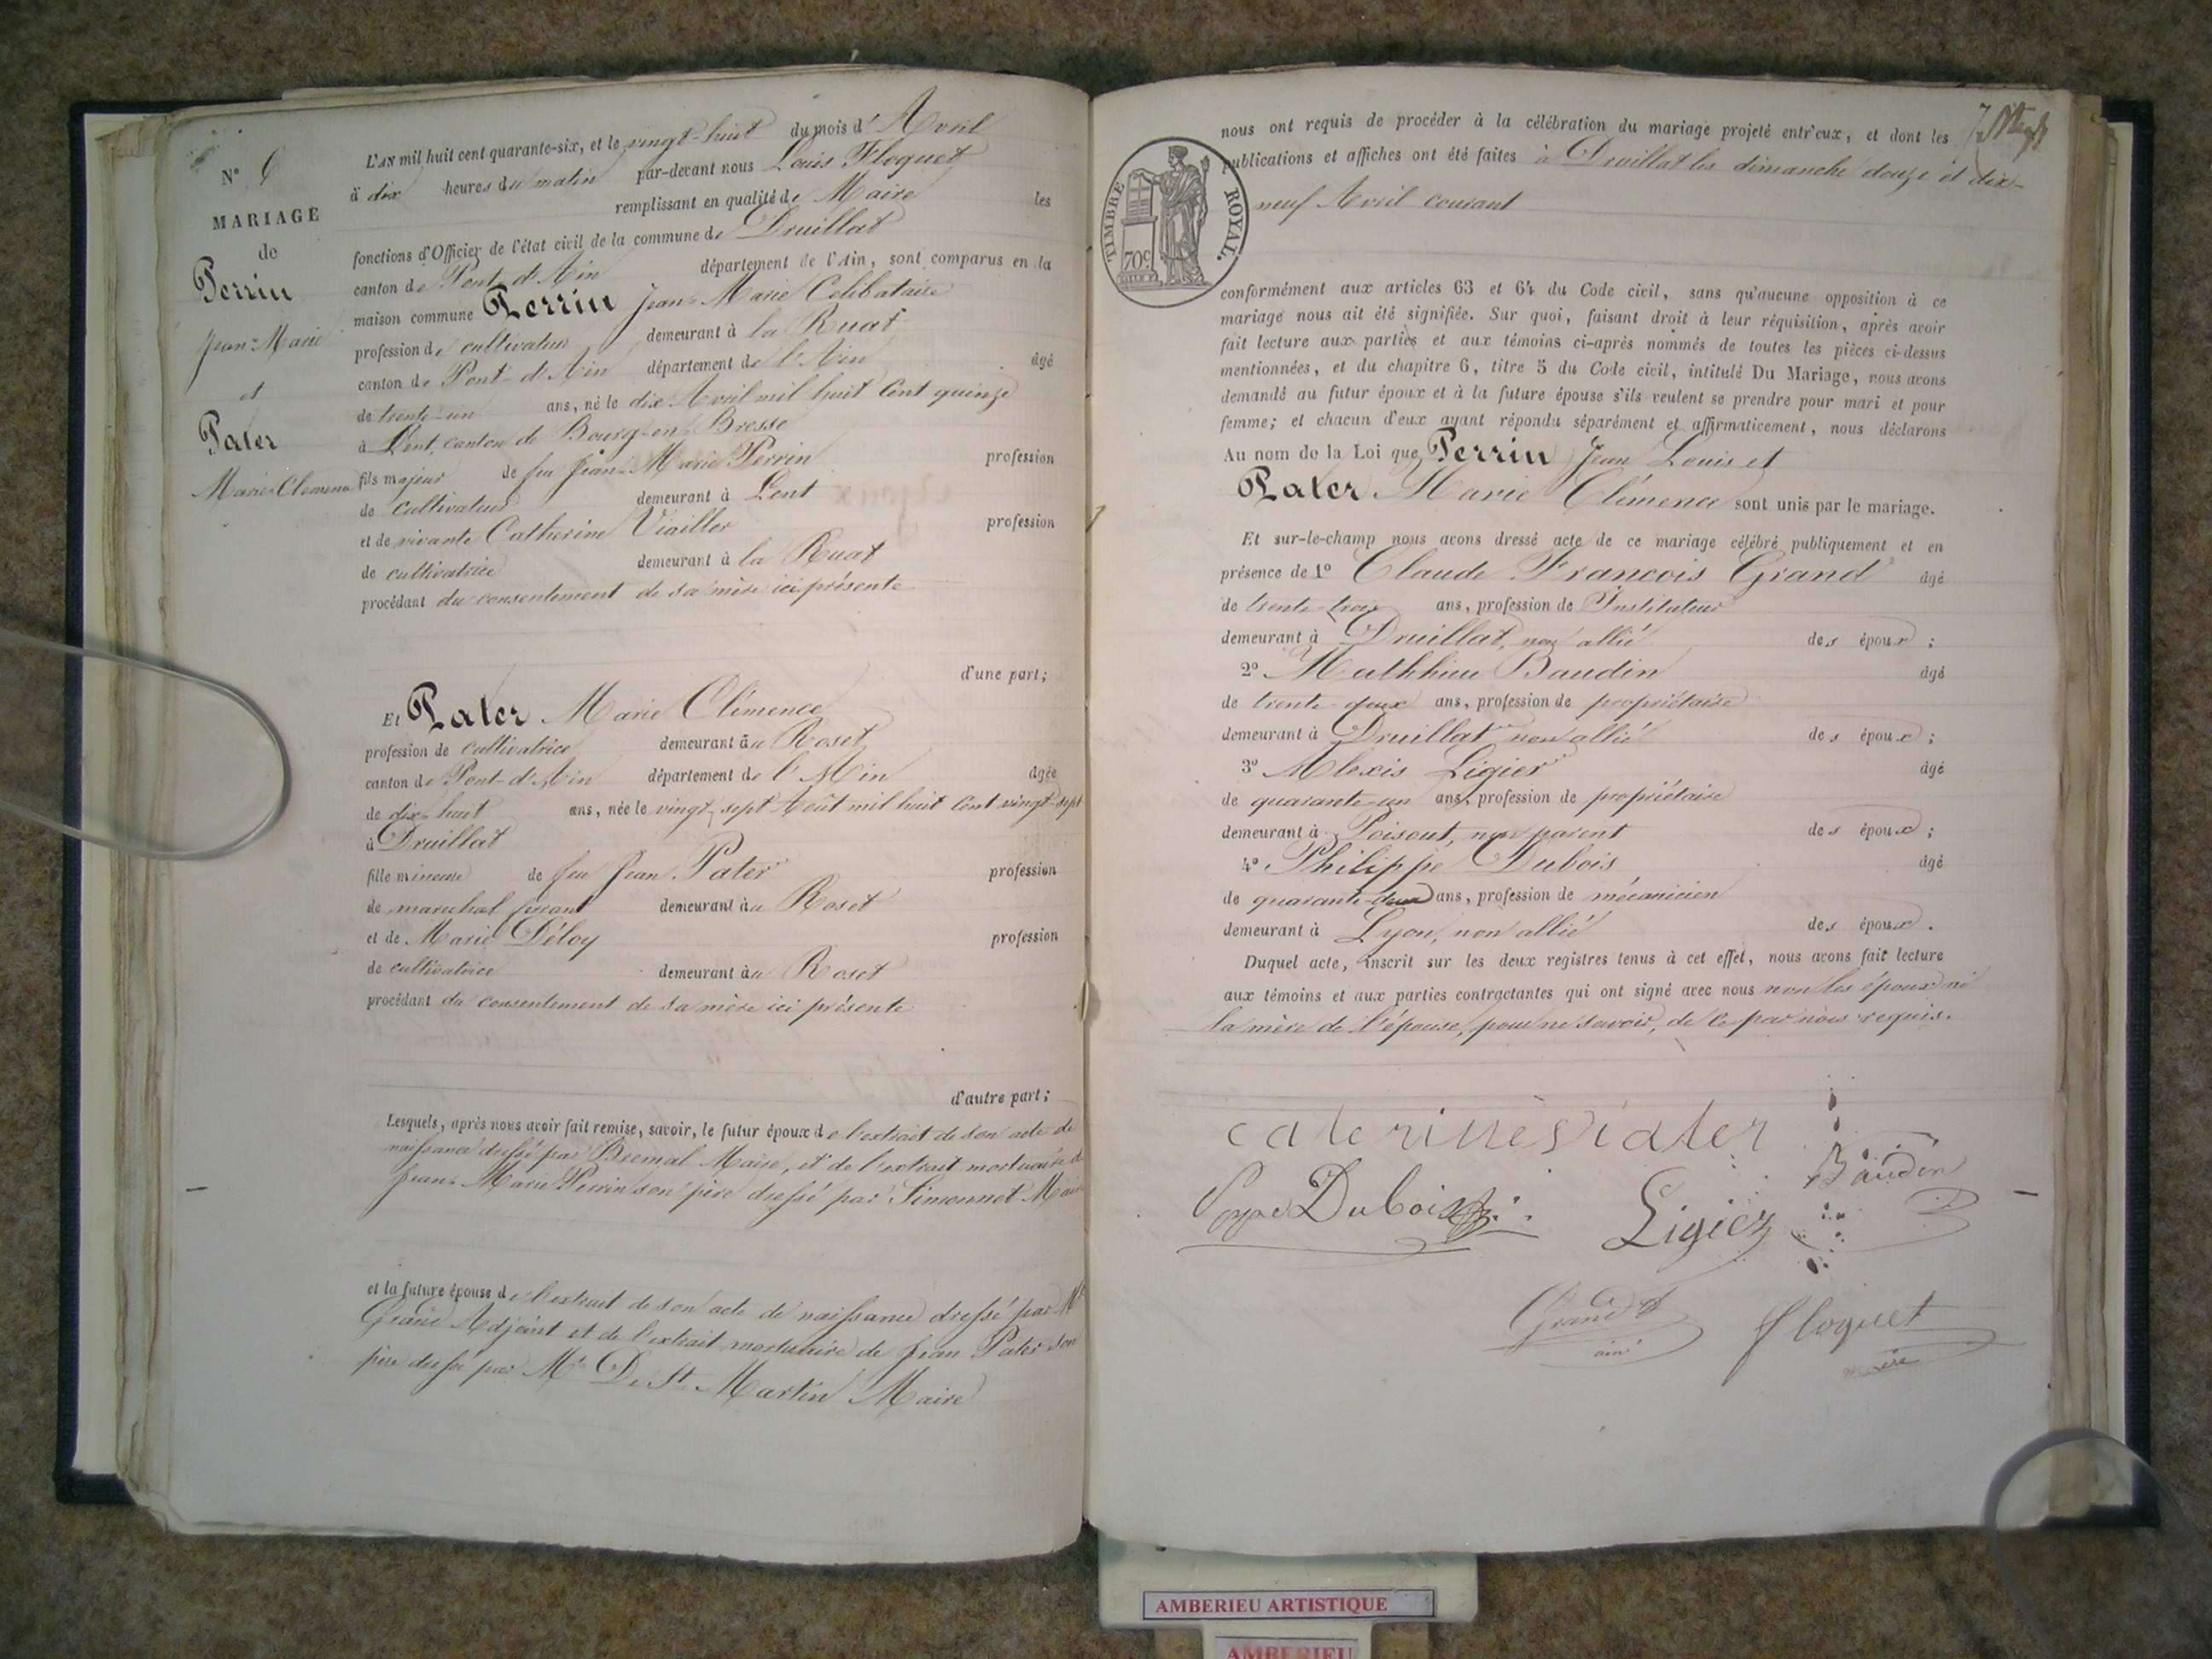 N° 9
MARIAGE
de
Perrin
Jean-Marie
et
Pater
Marie-Clemence
L'AN mil huit cent quarante-six, et le vingt-huit du mois d'Avril
à dix heures du matin par-devant nous Louis Floquet
remplissant en qualité de Maire les
fonctions d'Officier de l'état civil de la commune de Druillat
canton de Pont-d'Ain département de l'Ain, sont comparus en la
maison commune Perrin Jean-Marie Celibataire
profession de cultivateur demeurant à la Ruat
canton de Pont-d'Ain département de l'Ain âgé
de trente-un ans, né le dix Avril mil huit cent quinze
à Lent, canton de Bourg-en-Bresse
fils majeur de feu Jean-Marie Perrin profession
de cultivateur demeurant à Lent
et de vivante Catherine Viailler profession
de cultivatrice demeurant à la Ruat
procédant du consentement de sa mère ici présente
d'une part;
Et Pater Marie Clémence
profession de cultivatrice demeurant au Roset
canton de Pont-d'Ain département de l'Ain âgée
de dix-huit ans, née le vingt-sept Août mil huit cent vingt-sept
à Druillat
fille mineure de feu Jean Pater profession
de marechal ferrant demeurant au Roset
et de Marie Déloy profession
de cultivatrice demeurant au Roset
procédant du consentement de sa mère ici présente
d'autre part;
Lesquels, après nous avoir fait remise, savoir, le futur époux de l'extrait de son acte de
naissance dressé par Bremal Maire, et de l'extrait mortuaire de
Jean-Marie Perrin son père dressé par Simonnet Maire
et la future épouse de l'extrait de son acte de naissance dressé par Mr
Grand Adjoint et de l'extrait mortuaire de Jean Pater son
père dressé par Mr De St Martin Maire
nous ont requis de procéder à la célébration du mariage projeté entr'eux, et dont les
publications et affiches ont été faites à Druillat les dimanche douze et dix-
neuf Avril courant
TIMBRE ROYAL.
70c
conformément aux articles 63 et 64 du Code civil, sans qu'aucune opposition à ce
mariage nous ait été signifiée. Sur quoi, faisant droit à leur réquisition, après avoir
fait lecture aux parties et aux témoins ci-après nommés de toutes les pièces ci-dessus
mentionnées, et du chapitre 6, titre 5 du Code civil, intitulé Du Mariage, nous avons
demandé au futur époux et à la future épouse s'ils veulent se prendre pour mari et pour
femme; et chacun d'eux ayant répondu séparément et affirmativement, nous déclarons
Au nom de la Loi que Perrin Jean Louis et
Pater Marie Clémence sont unis par le mariage.
Et sur-le-champ nous avons dressé acte de ce mariage célébré publiquement et en
présence de 1° Claude Francois Grand âgé
de trente-trois ans, profession de Instituteur
demeurant à Druillat, non allié des époux;
2° Mathhieu Baudin âgé
de trente-deux ans, profession de propriétaire
demeurant à Druillat non allié des époux;
3° Alexis Ligier âgé
de quarante-un ans, profession de propriétaire
demeurant à Poisout, non parent des époux;
4° Philippe Dubois âgé
de quarante-deux ans, profession de mécanicien
demeurant à Lyon, non allié des époux.
Duquel acte, inscrit sur les deux registres tenus à cet effet, nous avons fait lecture
aux témoins et aux parties contractantes qui ont signé avec nous non les époux ni
la mère de l'épouse, pour ne savoir, de ce par nous requis.
caterine viater
Dubois
Ligiez
Baudin
Grand
ainé
Floquet
maire
AMBERIEU ARTISTIQUE
AMBERIEU